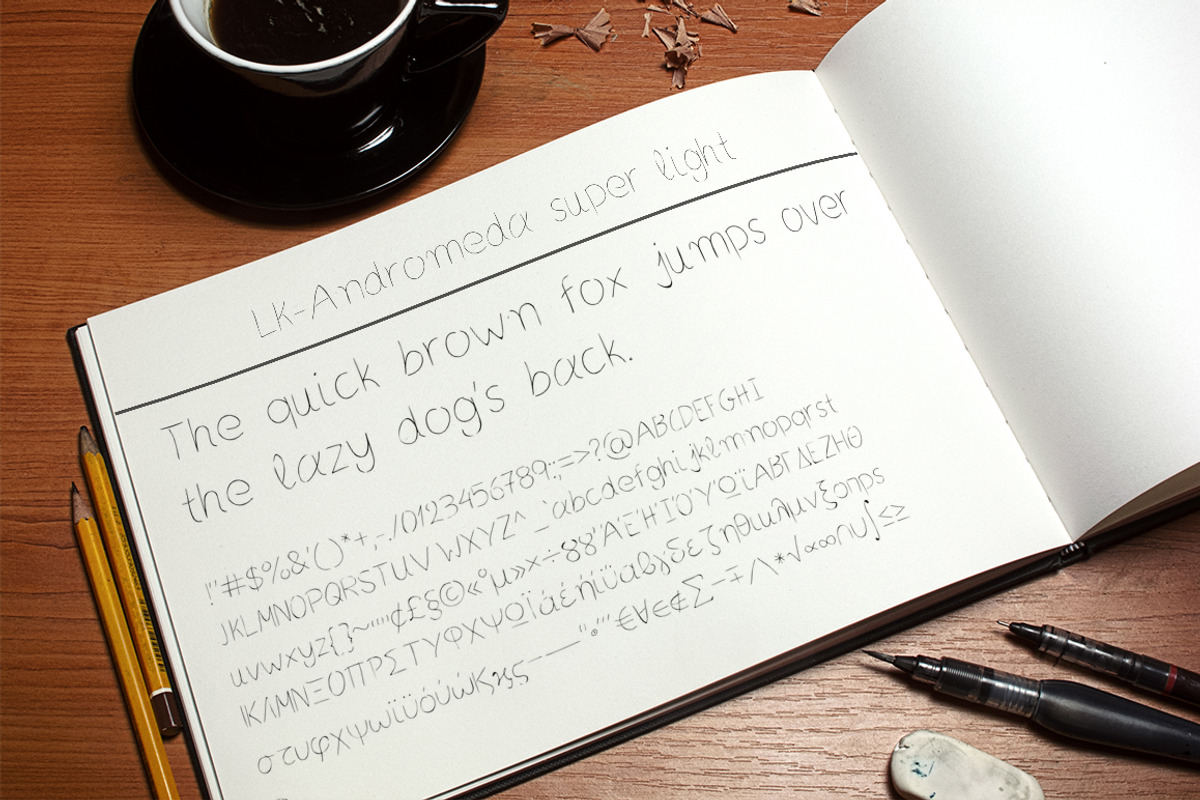 LK-Andromeda super light
The quick brown fox jumps over
the lazy dog's back.
!"#$%&'()*+,-./0123456789:;=>?@ABCDEFGHI
JKLMNOPQRSTUVWXYZ^_`abcdefghijklmnopqrst
uvwxyz{}~""'¢£§©«°µ»×÷
ΙΚΛΜΝΞΟΠΡΣΤΥΦΧΨΩΪάέήίΰαβγδεζηθικλμνξοπρς
στυφχψωϊϋόύώ